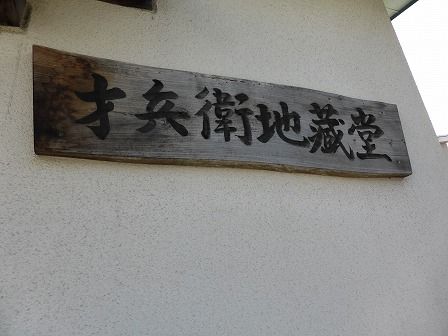 才兵衛地蔵堂